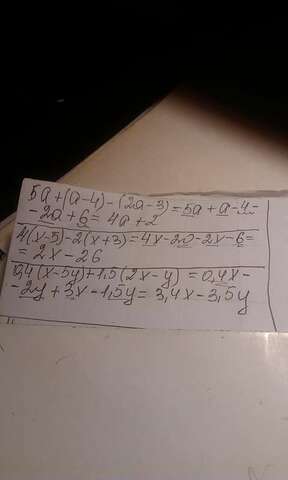 5a+(a-4)-(2a-3)=5a+a-4-
-2a+6=4a+2
4(x-5)-2(x+3)=4x-20-2x-6=
=2x-26
0,4(x-5y)+1,5(2x-y)=0,4x-
-2y+3x-1,5y=3,4x-3,5y